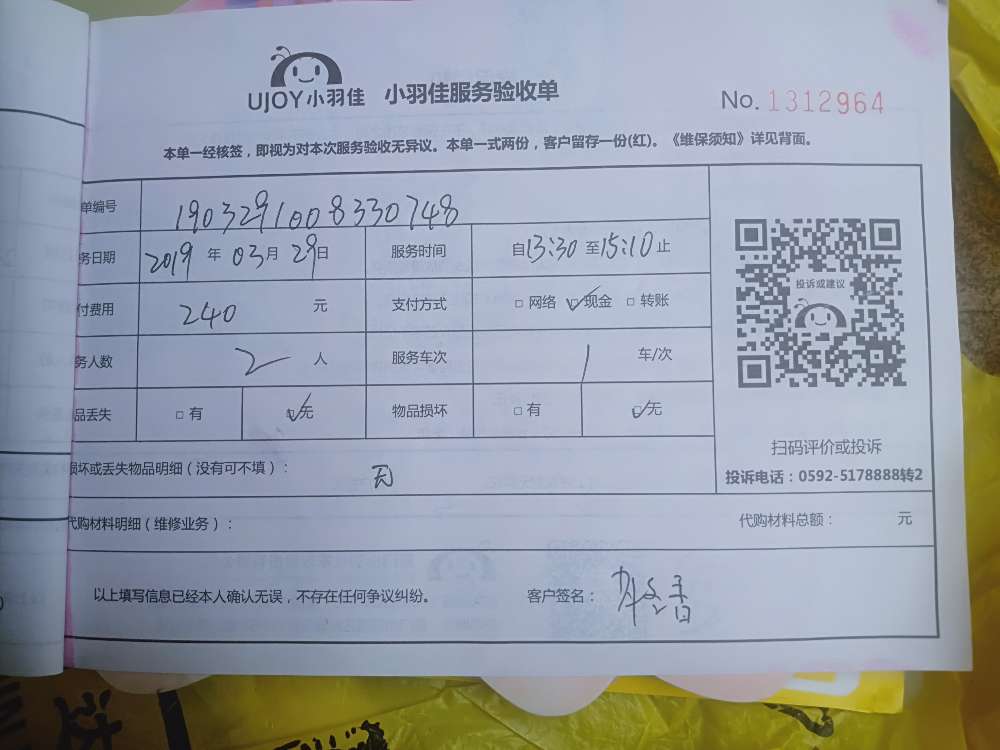 UJOY小羽佳 小羽佳服务验收单 No. 1312964
本单一经核签，即视为对本次服务验收无异议。本单一式两份，客户留存一份(红)。《维保须知》详见背面。
单编号 1903291008330748
务日期 2019 年 03 月 29 日 服务时间 自13:30 至15:10止
付费用 240 元 支付方式 □ 网络 ☑现金 □ 转账
务人数 2 人 服务车次 1 车/次
品丢失 □ 有 ☑无 物品损坏 □ 有 ☑无
投诉或建议
扫码评价或投诉
投诉电话：0592-5178888转2
损坏或丢失物品明细（没有可不填）： 无
代购材料明细（维修业务）： 代购材料总额： 元
以上填写信息已经本人确认无误，不存在任何争议纠纷。 客户签名：